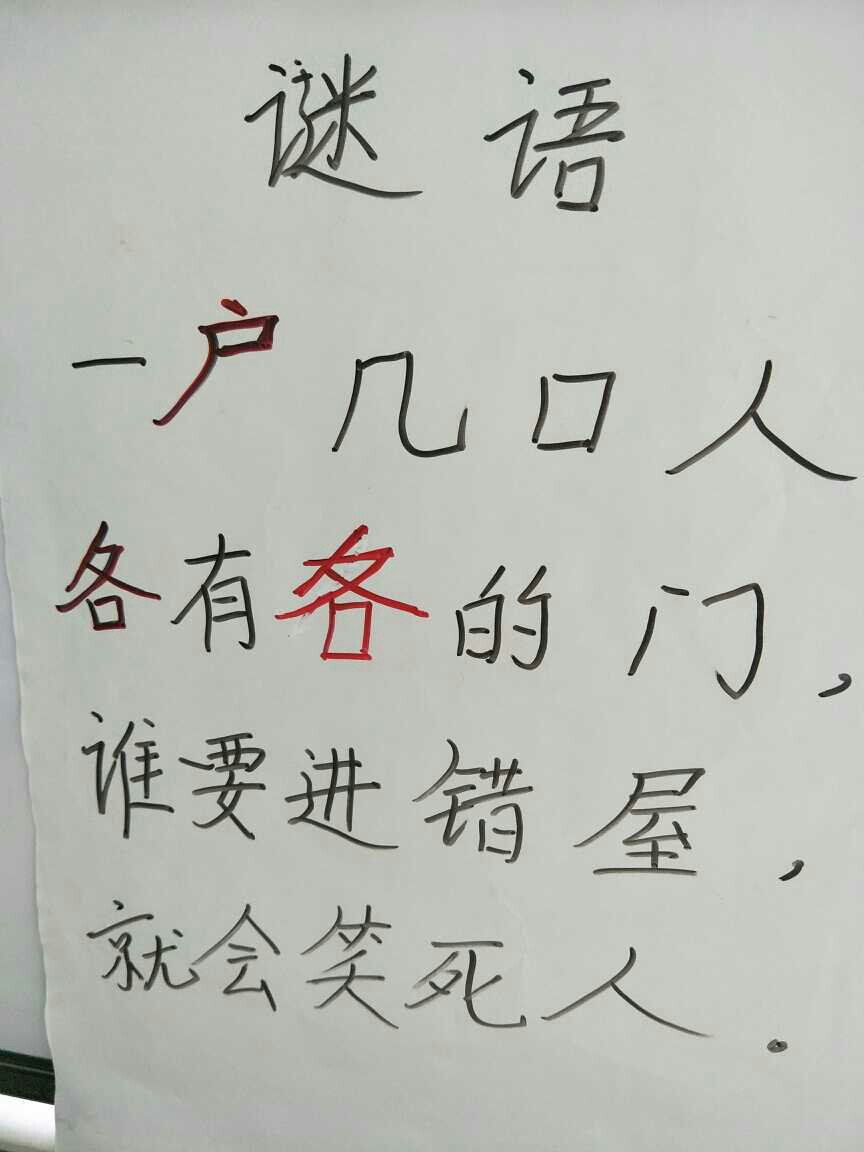 谜语
一户几口人
各有各的门,
谁要进错屋,
就会笑死人。